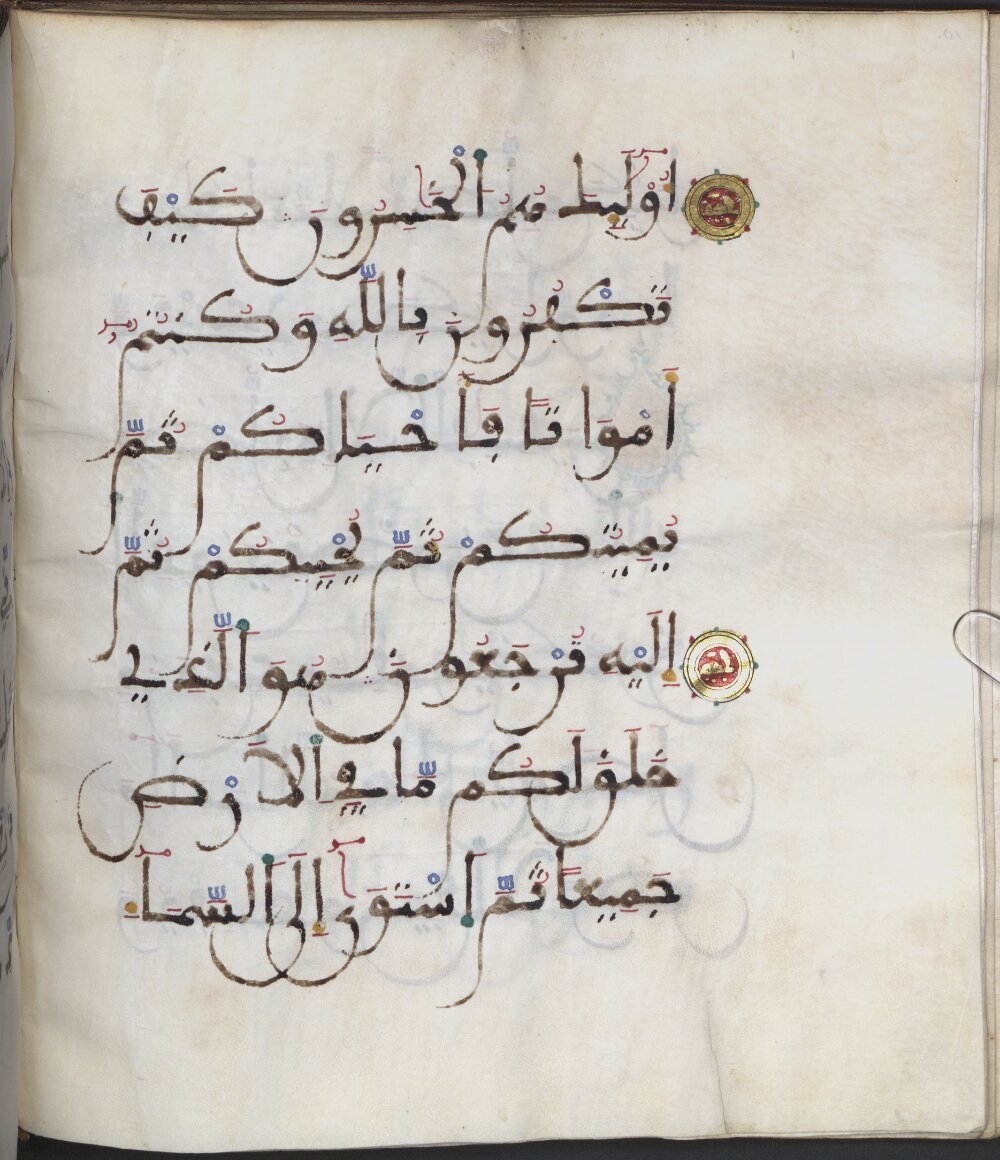 أُوْلَٰٓئِكَ هُمُ الْخَٰسِرُونَ كَيْفَ
تَكْفُرُونَ بِاللَّهِ وَكُنتُمُۥٓ
أَمْوَاتاً فَأَحْيَاكُمْ ثُمَّ
يُمِيتُكُمْ ثُمَّ يُحْيِيكُمْ ثُمَّ
إِلَيْهِ تُرْجَعُونَ هُوَ الَّذِي
خَلَقَ لَكُم مَّا فِي الْأَرْضِ
جَمِيعاً ثُمَّ اسْتَوَىٰٓ إِلَى السَّمَآءِ